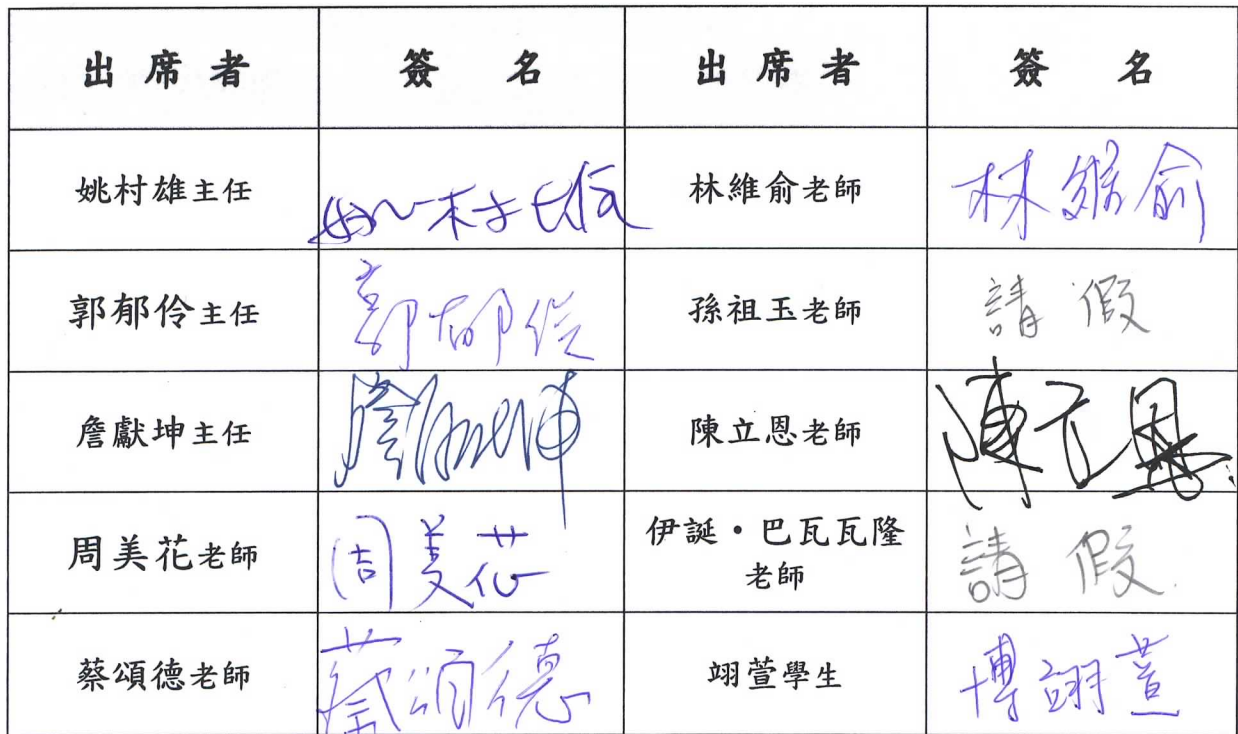 出席者 簽名 出席者 簽名
姚村雄主任 姚村雄 林維俞老師 林維俞
郭郁伶主任 郭郁伶 孫祖玉老師 請假
詹獻坤主任 詹獻坤 陳立恩老師 陳立恩
周美花老師 周美花 伊誕・巴瓦瓦隆
老師 請假
蔡頌德老師 蔡頌德 翊萱學生 博翊萱